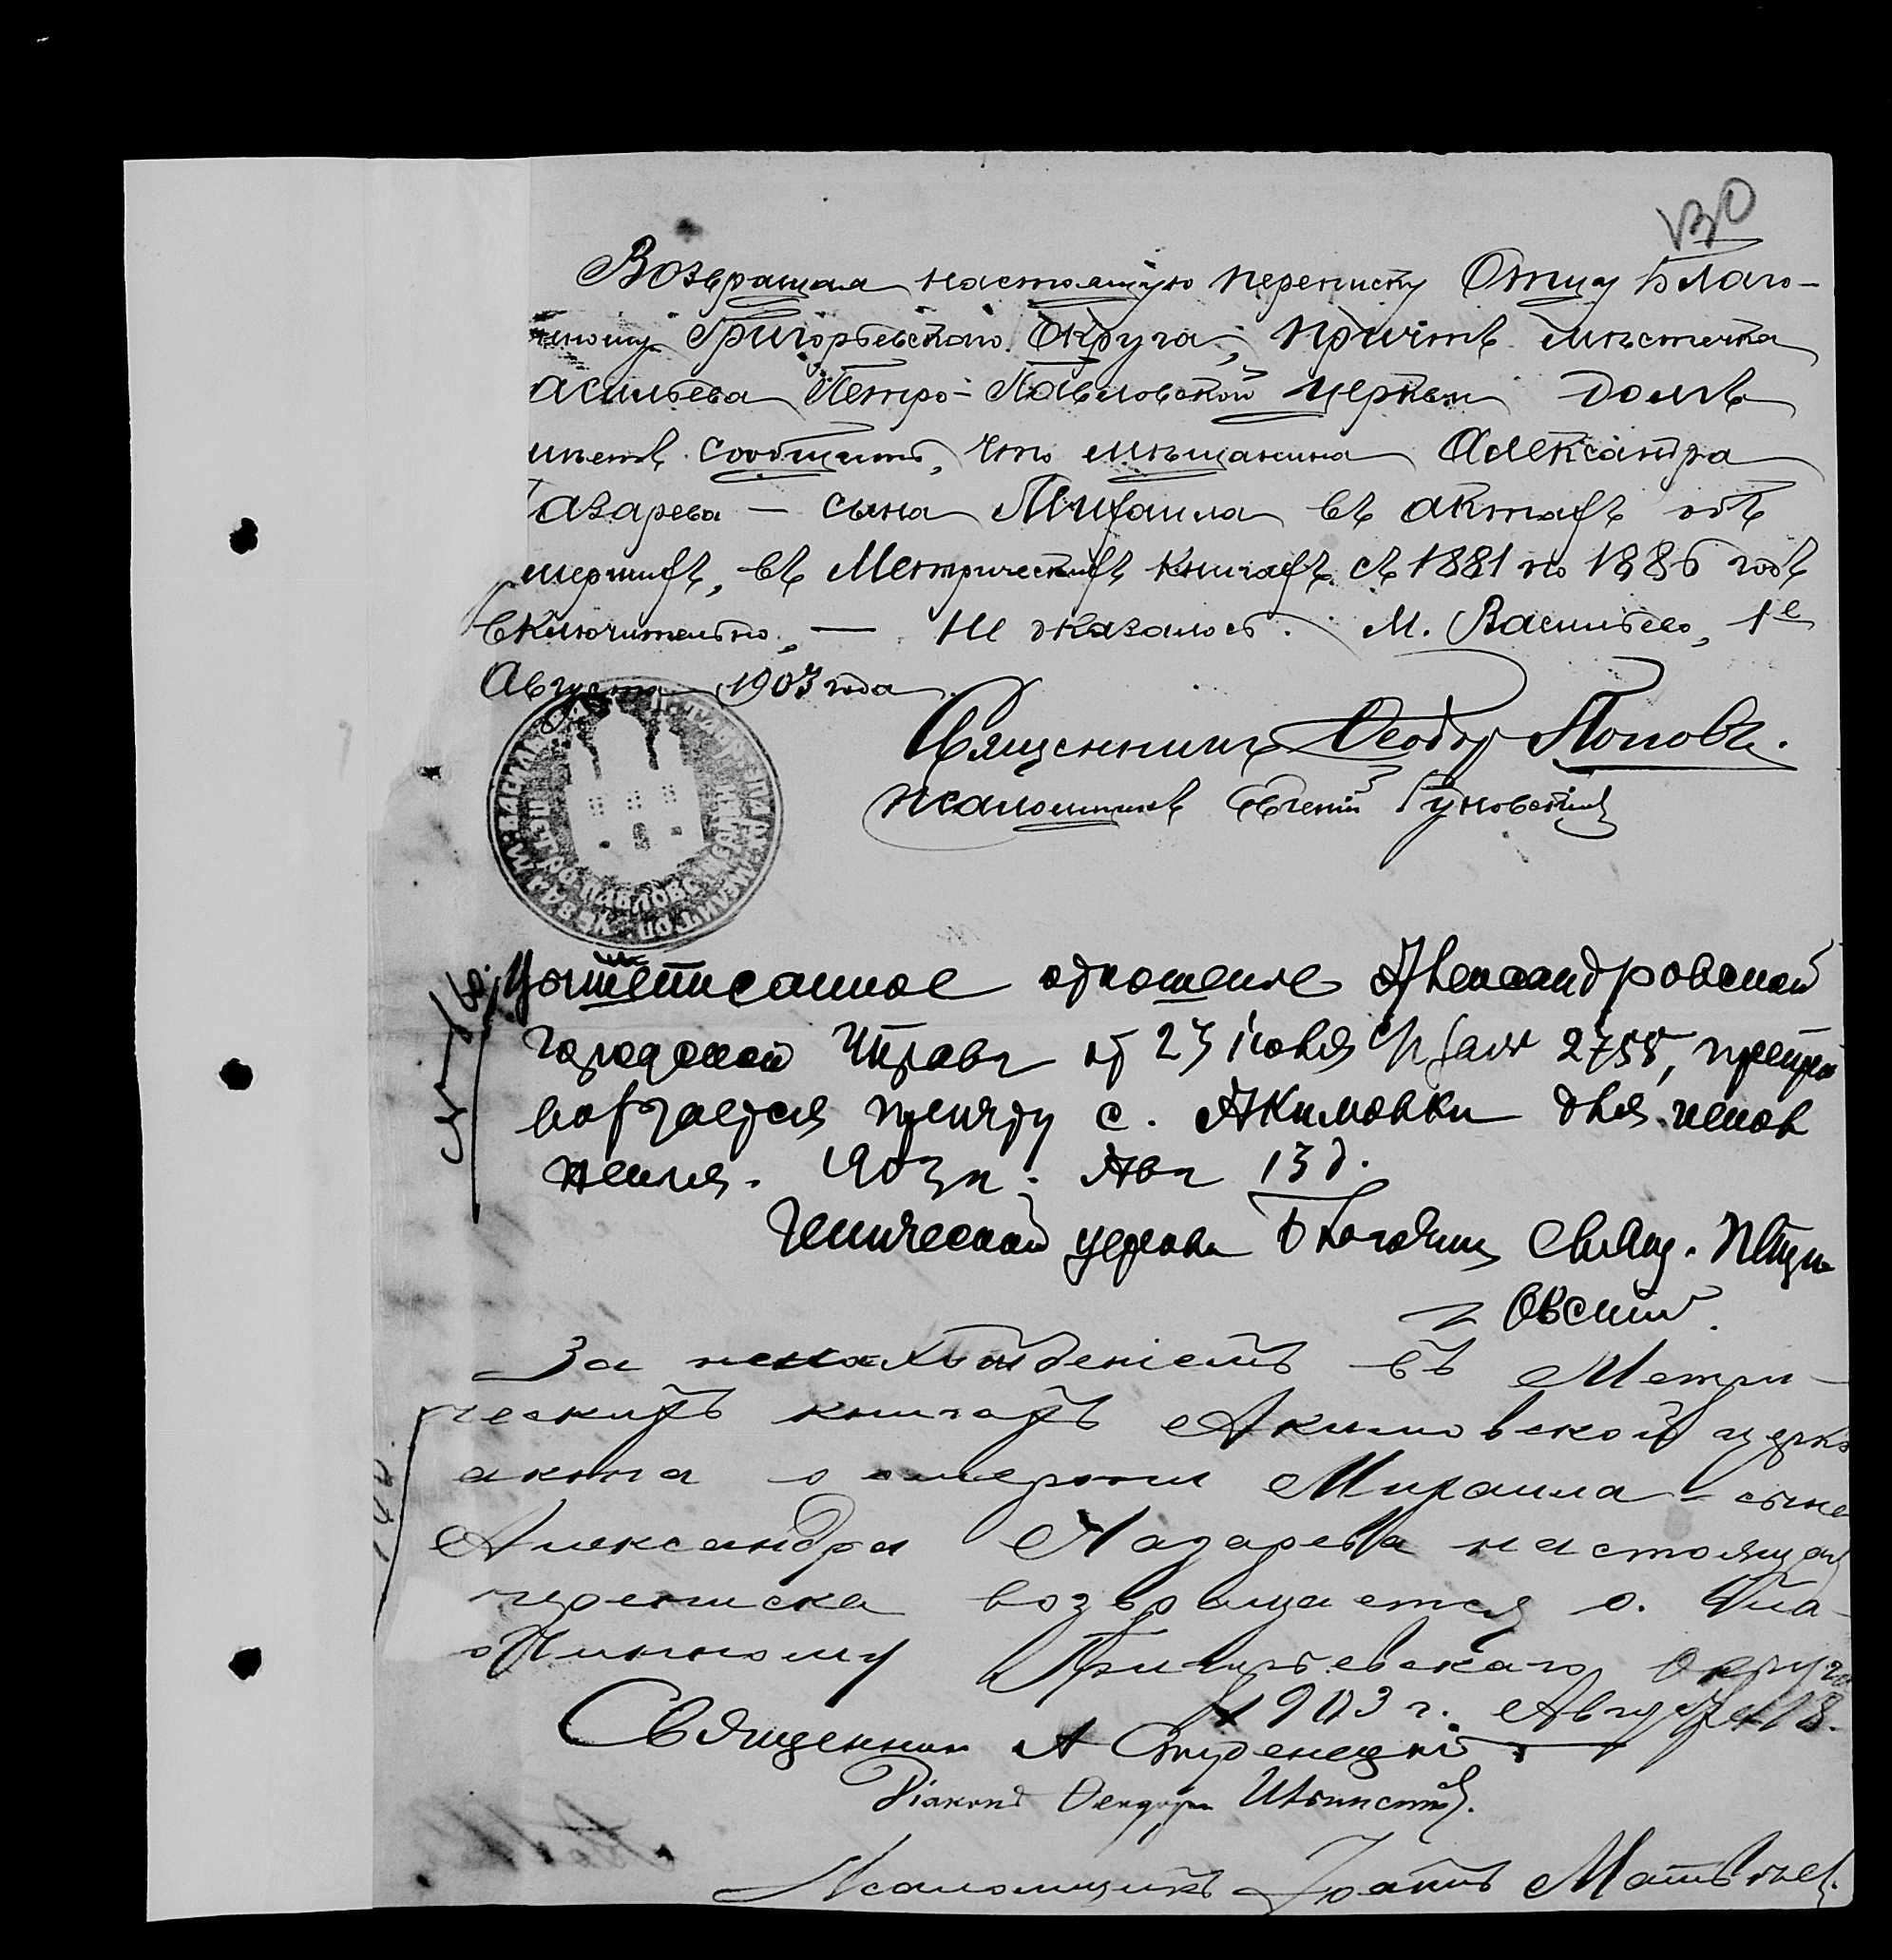 130
Возвращая настоящую переписку Отцу Благо-
чинному Григорьевскаго Округа, причтъ мѣстечка
асильева Петро-Павловской церкви долгъ
имѣетъ сообщить, что мѣщанина Александра
Лазарева — сына Михаила въ актахъ объ
умершихъ, въ Метрическихъ книгахъ съ 1881 по 1886 годъ
включительно, — не оказалось. М. Васильево, 1е
Августа 1903 года
Священникъ Ѳеодоръ Поповъ.
псаломщикъ Евгеній
М. ВАСИЛЬЕВА ТАВР. ЕПАР. МЕЛИТОП. УѢЗ.
ПЕТРО-ПАВЛОВСКОЙ
отношеніе Александровской
городской Управы от 23 іюля за № 2755, препро
вождается причту с. Акимовки для исполн
нения. 1903 г. Авг 13 д.
Генической церкви Благочин Свящ.
овский.
За ненахожденіемъ въ Метри-
ческихъ книгахъ Акимовской церкв
акта о смерти Михаила - сына
Александра Лазарева настоящая
переписка возвращается о. Бла-
очинному Григорьевскаго округа
1903 г. Августа 18.
Священник А Студенецкій
Діаконъ Ѳеодоръ
Псаломщикъ Іоаннъ Матвѣевъ.